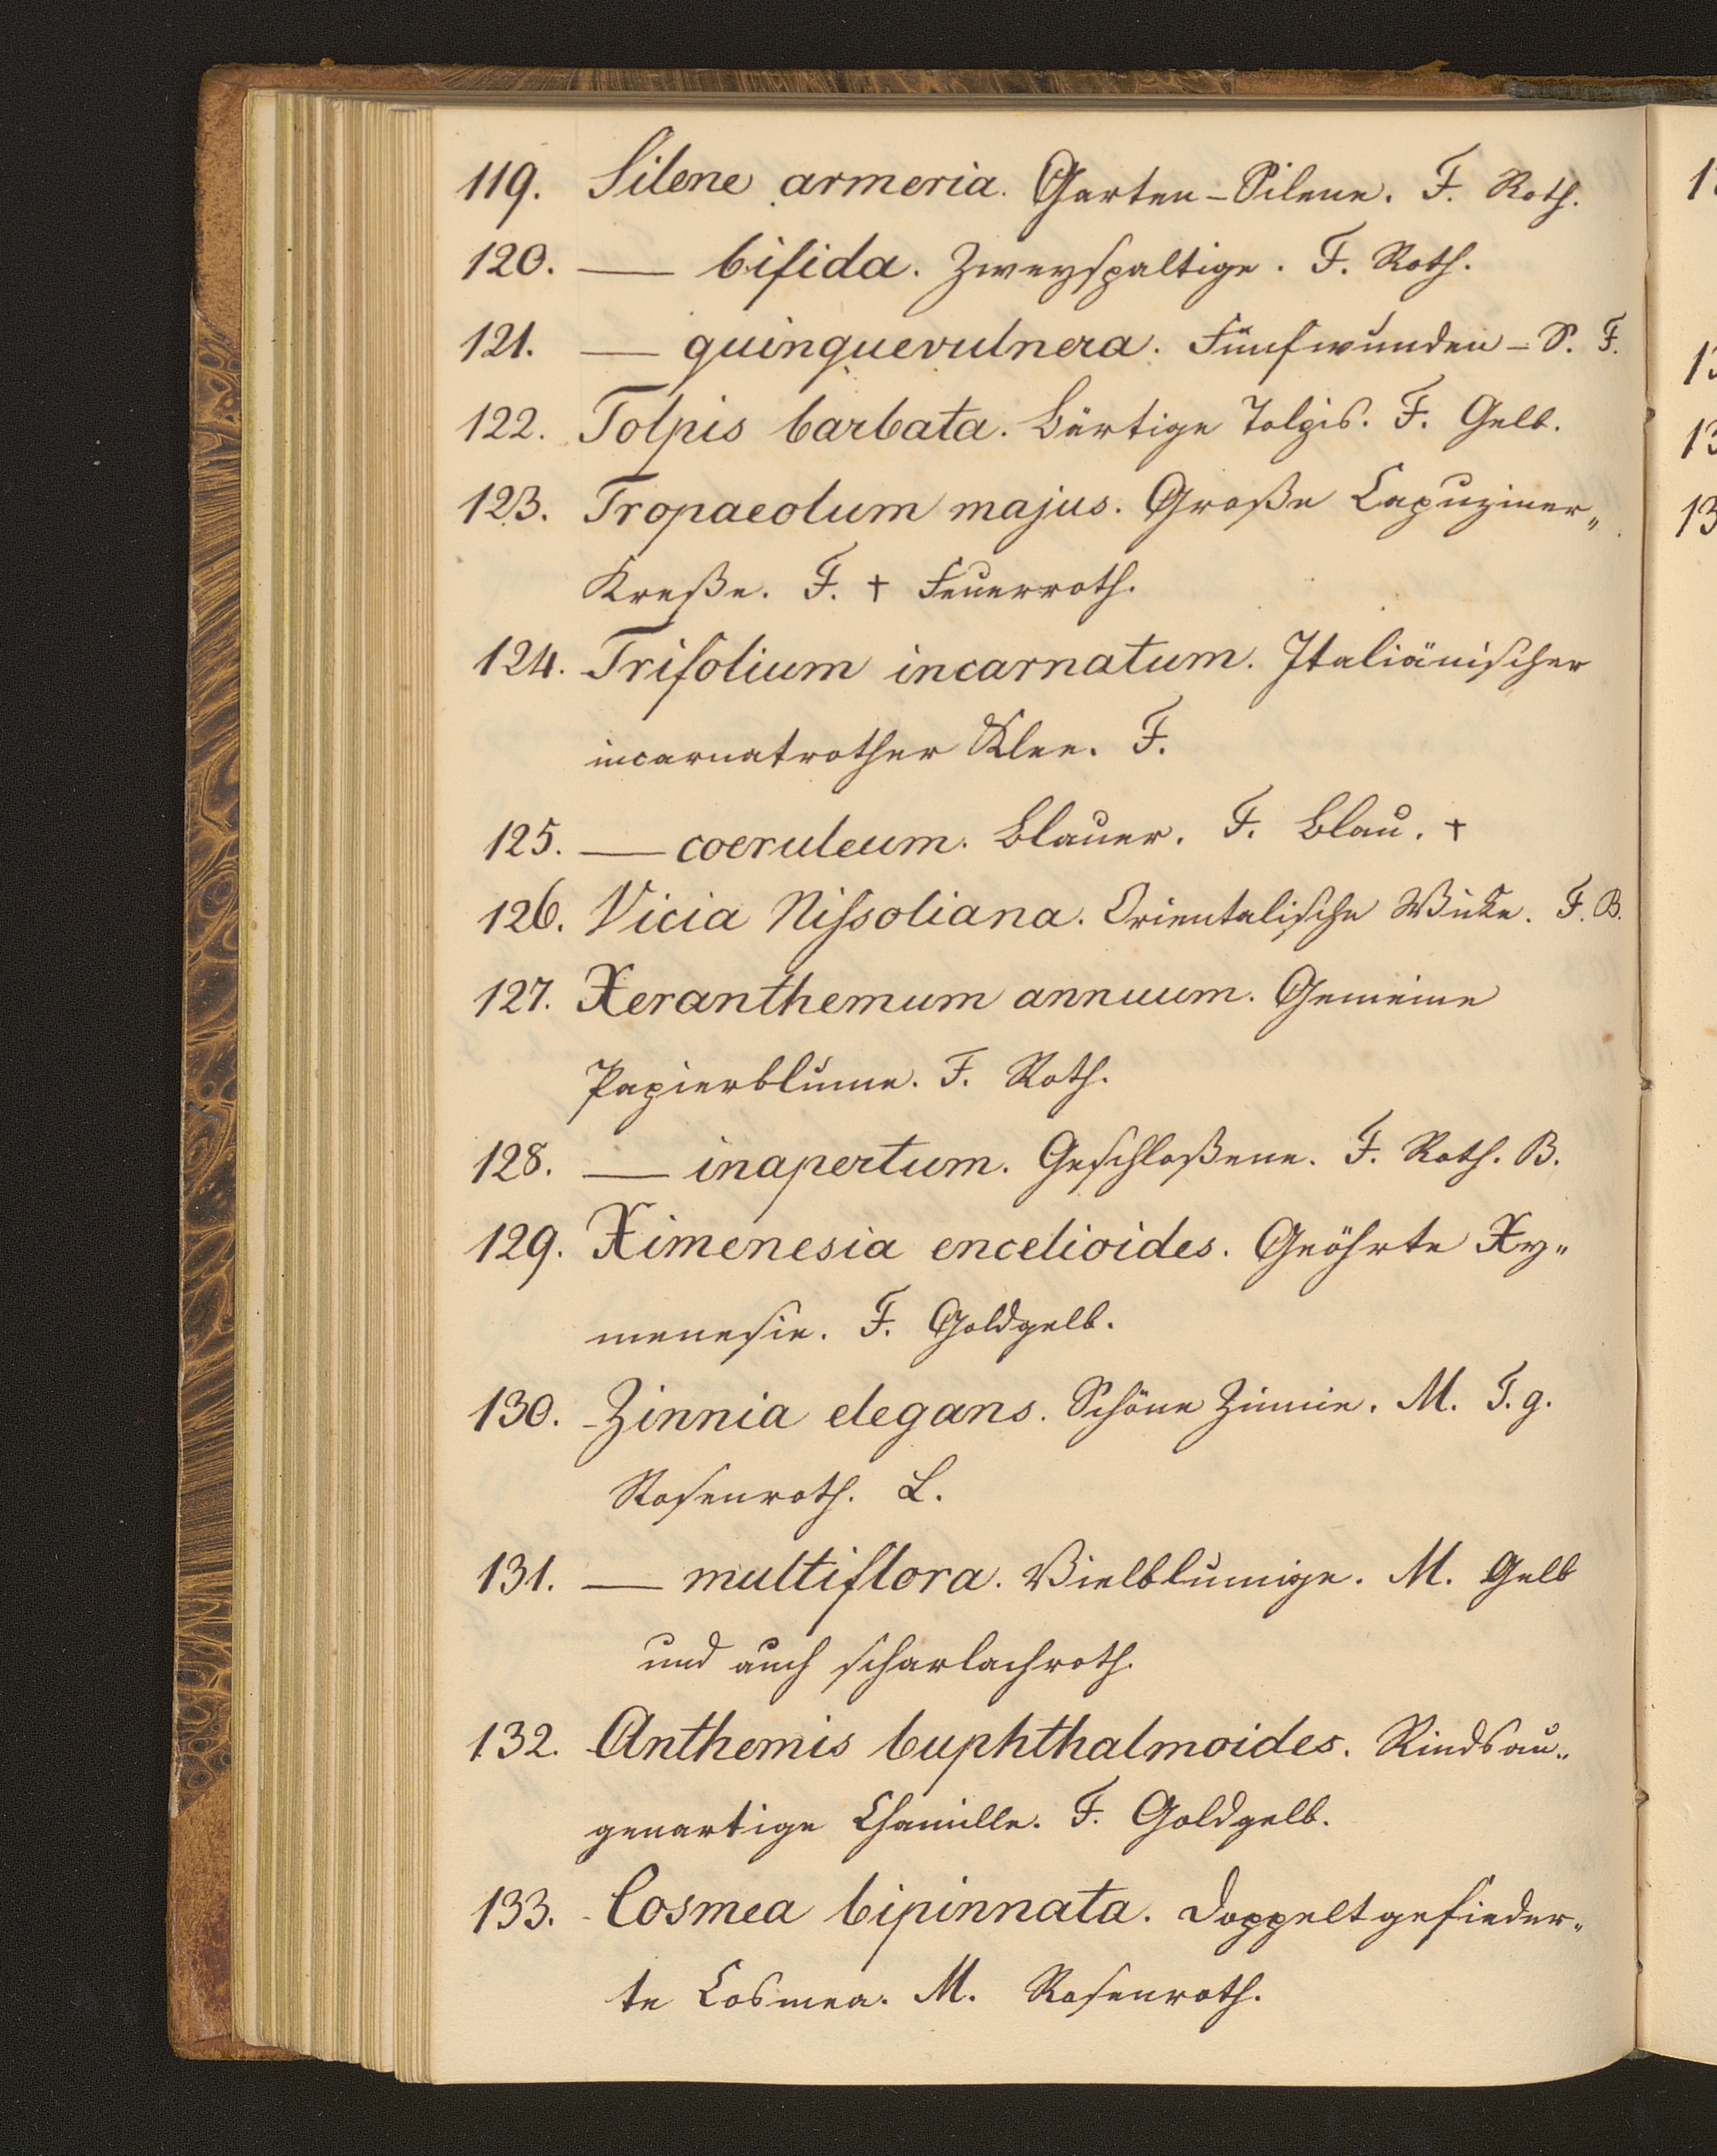 119. Silene armeria. Garten-Silene. F. Roth.
120. — bifida. Zweyspaltige. F. Roth.
121. — quinquevulnera. Fünfwunden-S. F.
122. Tolpis barbata. Bärtige Tolpis. F. Gelb.
123. Tropaeolum majus. Große Capuziner„
Kreße. F. † Feuerroth.
124. Trifolium incarnatum. Italiänischer
incarnatrother Klee. F.
125. — coeruleum. Blauer. F. Blau. †
126. Vicia Nißoliana. Orientalische Wicke. F. B.
127. Xeranthemum annuum. Gemeine
Papierblume. F. Roth.
128. — inapertum. Geschloßene. F. Roth. B.
129. Ximenesia encelioides. Geöhrte Xy„
menesie. F. Goldgelb.
130. Zinnia elegans. Schöne Zinnie. M. T. g.
Rosenroth. L.
131. — multiflora. Vielblumige. M. Gelb
und auch scharlachroth.
132. Anthemis buphthalmoides. Rindsau„
genartige Chamille. F. Goldgelb.
133. Cosmea bipinnata. Doppelt gefieder„
te Cosmea. M. Rosenroth.